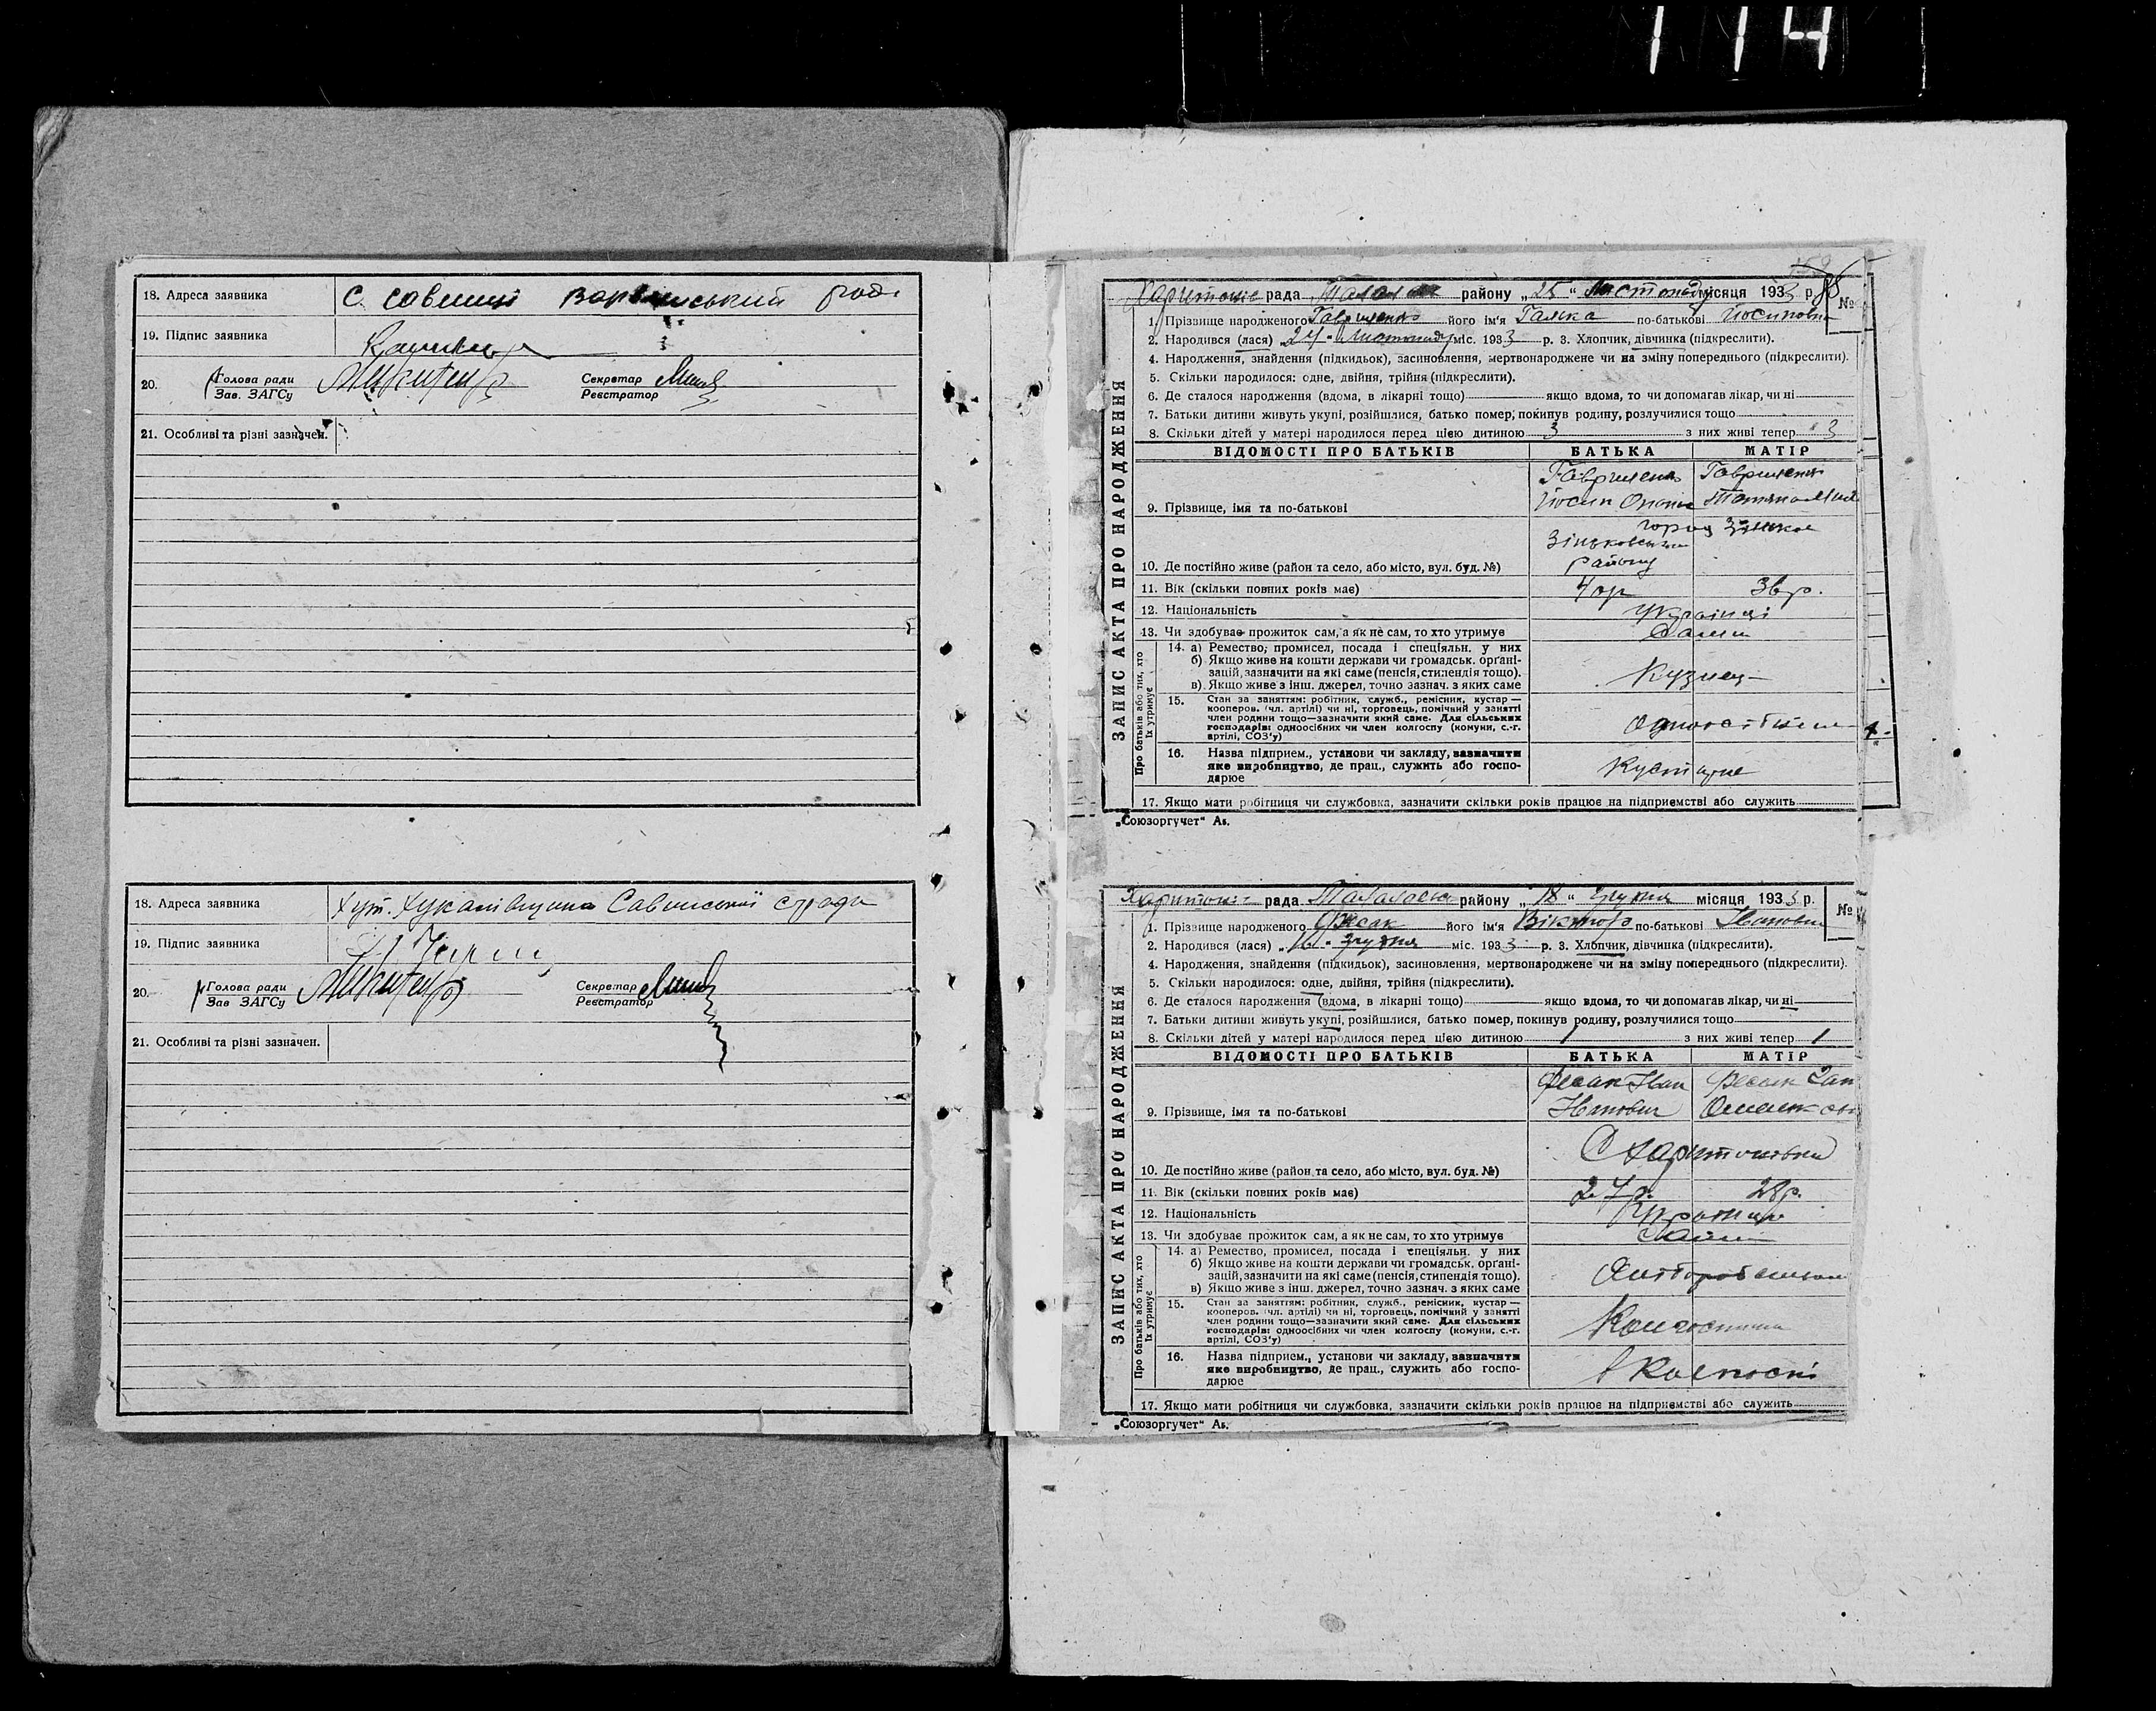 114
18. Адреса заявника С. Савинці Варвинський рай.
19. Підпис заявника
20. Голова ради Секретар
Зав. ЗАГСу Реєстратор
21. Особливі та різні зазначен.
18. Адреса заявника Хут. Савинської с/ради
19. Підпис заявника
20. Голова ради Секретар
Зав ЗАГСу Реєстратор
21. Особливі та різні зазначен.
ЗАПИС АКТА ПРО НАРОДЖЕННЯ
рада району „25“ Листопаду місяця 1933 р. №
1. Прізвище народженого Гавриленко його ім'я Галька по-батькові Йосиповна
2. Народився (лася) „24“ Листопаду міс. 1933 р. 3. Хлопчик, дівчинка (підкреслити).
4. Народження, знайдення (підкидьок), засиновлення, мертвонароджене чи на зміну попереднього (підкреслити).
5. Скільки народилося: одне, двійня, трійня (підкреслити).
6. Де сталося народження (вдома, в лікарні тощо) якщо вдома, то чи допомагав лікар, чи ні
7. Батьки дитини живуть укупі, розійшлися, батько помер, покинув родину, розлучилися тощо
8. Скільки дітей у матері народилося перед цією дитиною 3 з них живі тепер 3
ВІДОМОСТІ ПРО БАТЬКІВ БАТЬКА МАТІР
Гавриленко Гавриленко
9. Прізвище, імя та по-батькові Йосип
город
Зіньковський
10. Де постійно живе (район та село, або місто, вул. буд. №) району
11. Вік (скільки повних років має) 40р 36р.
12. Національність Українці
13. Чи здобуває прожиток сам, а як не сам, то хто утримує Сами
Про батьків або тих, хто їх утримує
14. а) Ремество, промисел, посада і спеціяльн. у них
б) Якщо живе на кошти держави чи громадськ. орґані-
зацій, зазначити на які саме (пенсія, стипендія тощо). Кузнец
в) Якщо живе з інш. джерел, точно зазнач. з яких саме
15. Стан за заняттям: робітник, служб., ремісник, кустар —
кооперов. (чл. артілі) чи ні, торговець, помічний у занятті
член родини тощо—зазначити який саме. Для сільських
господарів: одноосібних чи член колгоспу (комуни, с.-г.
артілі, СОЗ'у)
16. Назва підприєм., установи чи закладу, зазначити
яке виробництво, де прац., служить або госпо-
дарює
17. Якщо мати робітниця чи службовка, зазначити скільки років працює на підприємстві або служить
„Союзоргучет“ А₅.
ЗАПИС АКТА ПРО НАРОДЖЕННЯ
рада району „18“ грудня місяця 1933 р. №
1. Прізвище народженого Фесак його ім'я Віктор по-батькові Іванович
2. Народився (лася) „16“ грудня міс. 1933 р. 3. Хлопчик, дівчинка (підкреслити).
4. Народження, знайдення (підкидьок), засиновлення, мертвонароджене чи на зміну попереднього (підкреслити).
5. Скільки народилося: одне, двійня, трійня (підкреслити).
6. Де сталося народження (вдома, в лікарні тощо) якщо вдома, то чи допомагав лікар, чи ні
7. Батьки дитини живуть укупі, розійшлися, батько помер, покинув родину, розлучилися тощо
8. Скільки дітей у матері народилося перед цією дитиною 1 з них живі тепер 1
ВІДОМОСТІ ПРО БАТЬКІВ БАТЬКА МАТІР
Фесак Іван Фесак
9. Прізвище, імя та по-батькові Іванович
10. Де постійно живе (район та село, або місто, вул. буд. №) С Харитоновка
11. Вік (скільки повних років має) 27р. 28р.
12. Національність Українці
13. Чи здобуває прожиток сам, а як не сам, то хто утримує Сами
Про батьків або тих, хто їх утримує
14. а) Ремество, промисел, посада і спеціяльн. у них
б) Якщо живе на кошти держави чи громадськ. орґані-
зацій, зазначити на які саме (пенсія, стипендія тощо).
в) Якщо живе з інш. джерел, точно зазнач. з яких саме
15. Стан за заняттям: робітник, служб., ремісник, кустар —
кооперов. (чл. артілі) чи ні, торговець, помічний у занятті
член родини тощо—зазначити який саме. Для сільських
господарів: одноосібних чи член колгоспу (комуни, с.-г.
артілі, СОЗ'у)
16. Назва підприєм., установи чи закладу, зазначити
яке виробництво, де прац., служить або госпо-
дарює В колгоспі
17. Якщо мати робітниця чи службовка, зазначити скільки років працює на підприємстві або служить
„Союзоргучет“ А₅.